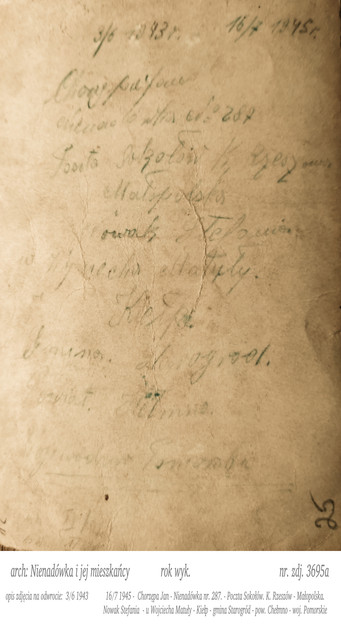 3/6 1943r. 16/7 1945r.
Chorzępa Jan
Nienadówka No 287
Poczta Sokołów K. Rzeszowa
Małopolska
Nowak Stefania
u Wojciecha Matuły.
Kiełp.
Gmina. Starogród.
powiat. Chełmno.
25
arch: Nienadówka i jej mieszkańcy rok wyk. nr. zdj. 3695a
opis zdjęcia na odwrocie: 3/6 1943 16/7 1945 - Chorzępa Jan - Nienadówka nr. 287. - Poczta Sokołów. K. Rzeszów - Małopolska.
Nowak Stefania - u Wojciecha Matuły - Kiełp - gmina Starogród - pow. Chełmno - woj. Pomorskie